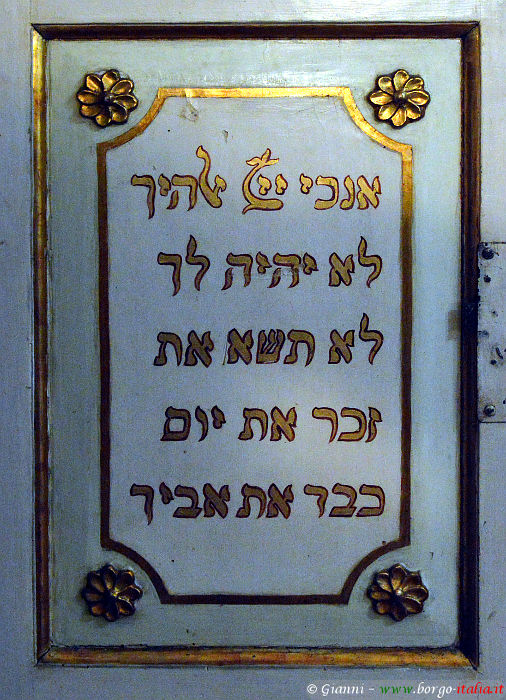 אנכי יי ﭏהיך
לא יהיה לך
לא תשא את
זכר את יום
כבד את אביך
© Gianni - www.borgo-italia.it